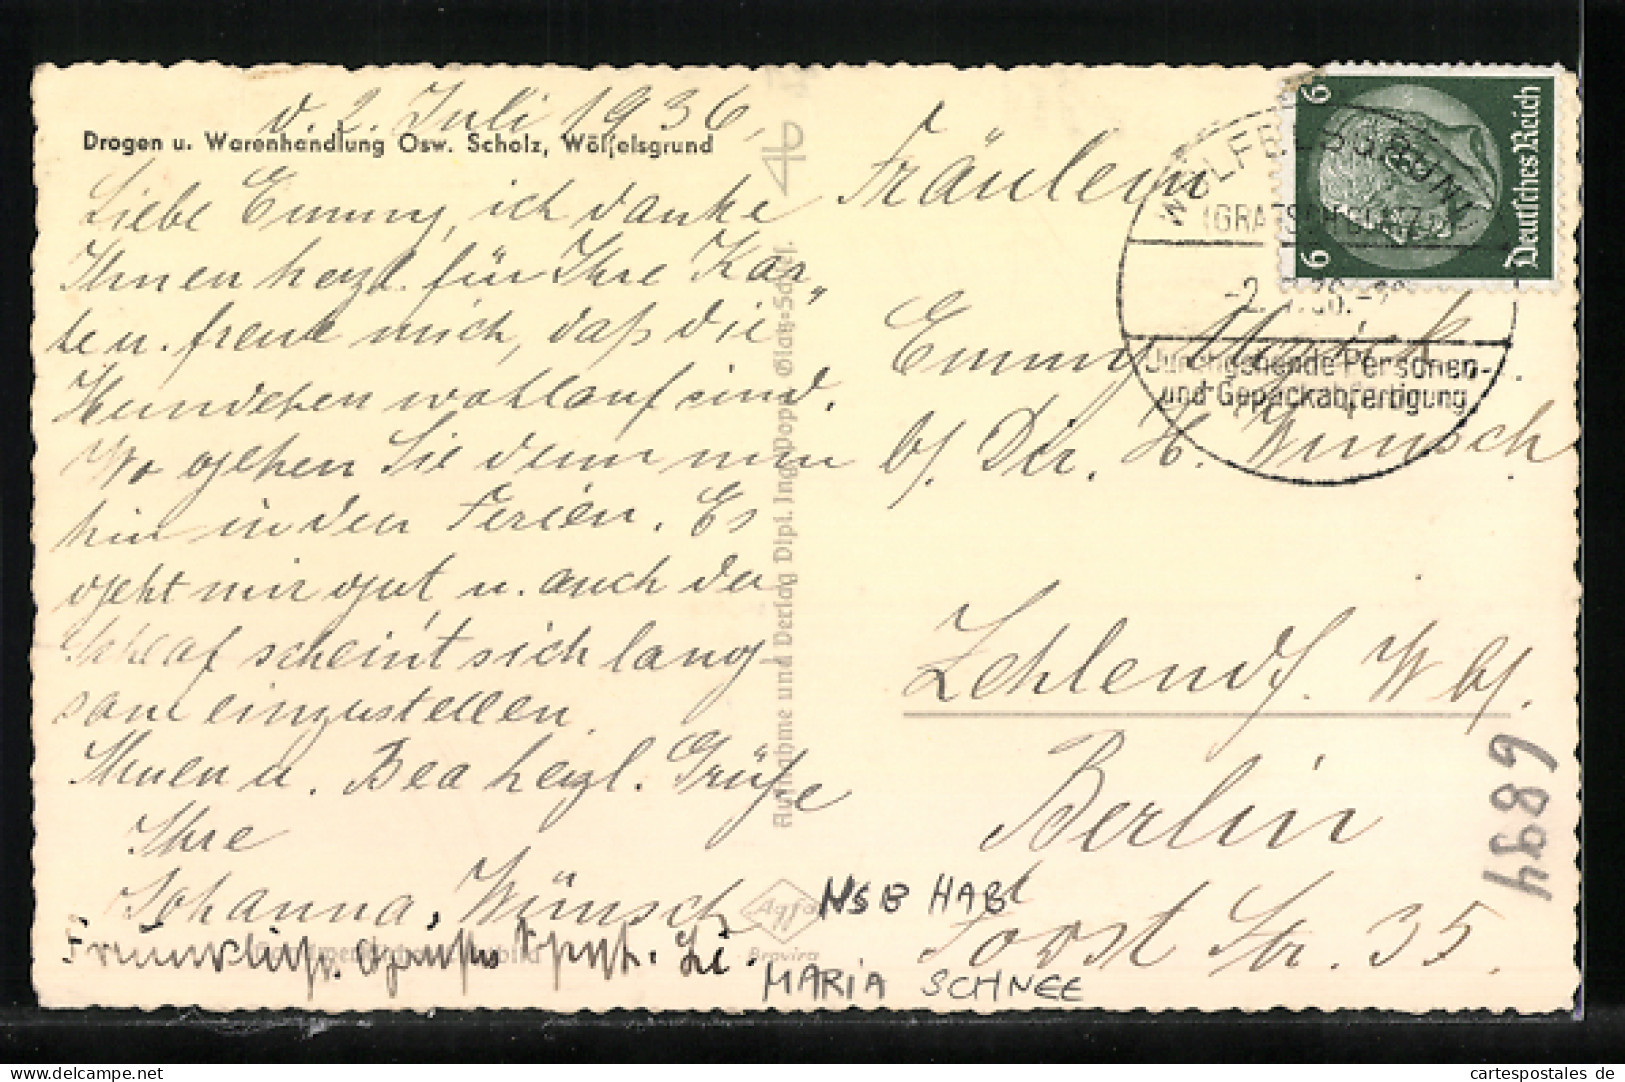 d. 2. Juli 1936,
Drogen u. Warenhandlung Osw. Scholz, Wölfelsgrund
Liebe Emmy, ich danke
Ihnen herzl. für Ihre Kar„
te u. freue mich, daß die
Hundchen wohlauf sind.
Wo gehen Sie denn nun
hin in den Ferien. Es
geht mir gut u. auch der
Schlaf scheint sich lang
sam einzustellen.
Ihnen u. Bea herzl. Grüße
Ihre
Johanna Wünsch
Freundliche
Aufnahme und Verlag Dipl. Ing. Popp, Glatz-Schles.
Agfa
Brovira
WÖLFELSGRUND
Durchgehende Personen-
und Gepäckabfertigung
6
6
Deutsches Reich
Fräulein
Emmy
b/. Dir. H. Wünsch
Zehlendf. W b/.
Berlin
Str. 35.
NSB HABL
MARIA SCHNEE
6894
www.cartespostales.de
cartespostales.de